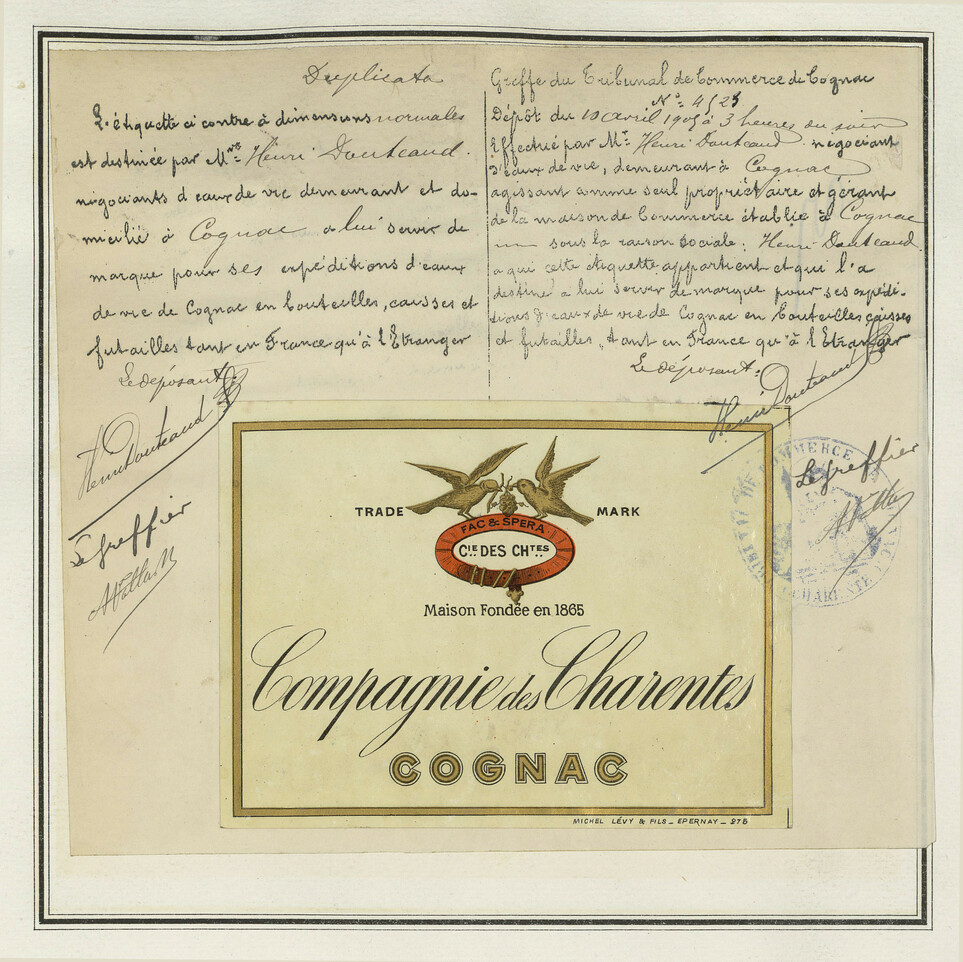 Duplicata
L'étiquette ci contre à dimensions normales
est destinée par Mre Henri Douteaud.
négociants d'eaux de vie demeurant et do-
micilié à Cognac a lui servir de
marque pour ses expéditions d'eaux
de vie de Cognac en bouteilles, caisses et
futailles tant en France qu'à l'Etranger
Le déposant:
Henri Douteaud
Le greffier
Greffe du Tribunal de Commerce de Cognac
No: 4525
Dépôt du 10 avril 1905 à 3 heures du soir
Effectué par Mr. Henri Douteaud négociant
d'eaux de vie, demeurant à Cognac
agissant comme seul propriétaire et gérant
de la maison de Commerce établie à Cognac
sous la raison sociale: Henri Douteaud.
a qui cette étiquette appartient et qui l'a
destiné a lui servir de marque pour ses expédi-
tions d'eaux de vie de Cognac en bouteilles caisses
et futailles, tant en France qu'à l'Etranger
Le déposant:
Henri Douteaud
Le greffier
DE COMMERCE
CHARENTE
TRADE MARK
FAC & SPERA
CIE DES CHTES
Maison Fondée en 1865
Compagnie des Charentes
COGNAC
MICHEL LÉVY & FILS _ EPERNAY _ 275